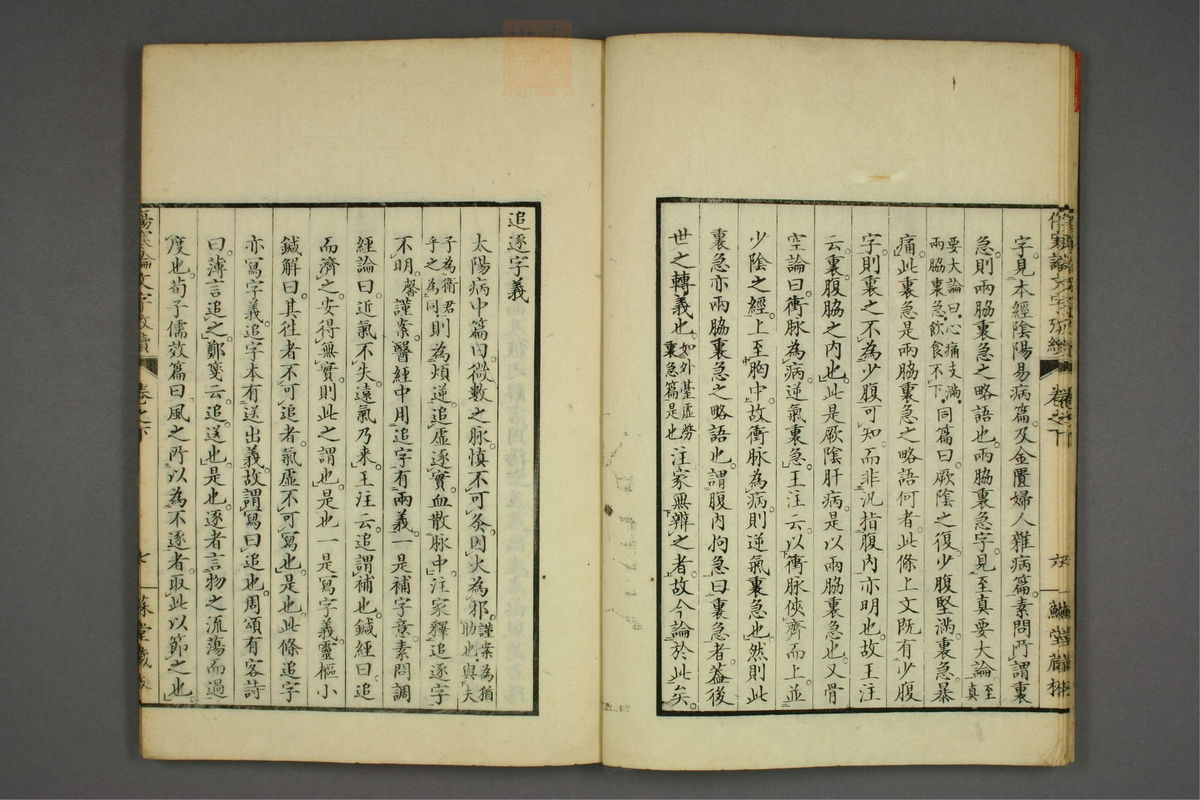 字見本經陰陽易病篇及金匱婦人雜病篇素問所謂裏
急則兩脇裏急之略語也兩脇裏急字見至真要大論至真
要大論曰心痛支滿兩脇裏急飲食不下同篇曰厥陰之復少腹堅滿裏急暴
痛此裏急是兩脇裏急之略語何者此條上文既有少腹
字則裏之不為少腹可知而非汎指腹內亦明也故王注
云裏腹脇之內也此是厥陰肝病是以兩脇裏急也又骨
空論曰衝脉為病逆氣裏急王注云以衝脈俠齊而上並
少陰之經上至胸中故衝脈為病則逆氣裏急也然則此
裏急亦兩脇裏急之略語也謂腹內拘急曰裏急者蓋後
世之轉義也如外臺虛勞裏急篇是也注家無辨之者故今論於此矣
追逐字義
太陽病中篇曰微數之脉慎不可灸因火為邪謹案為猶助也與夫
子為衛君乎之為同則為煩逆追虛逐實血散脉中注家釋追逐字
不明罄謹案醫經中用追字有兩義一是補字意素問調
經論曰近氣不失遠氣乃来王注云追謂補也鍼經曰追
而濟之安得無實則此之謂也是也一是寫字義靈樞小
鍼解曰其徃者不可追者氣虛不可寫也是也此條追字
亦寫字義追字本有送出義故謂寫曰追也周頌有客詩
曰薄言追之鄭箋云追送也是也逐者言物之流蕩而過
度也荀子儒效篇曰風之所以為不逐者取此以節之也
傷寒論文字攷續
卷之下
七